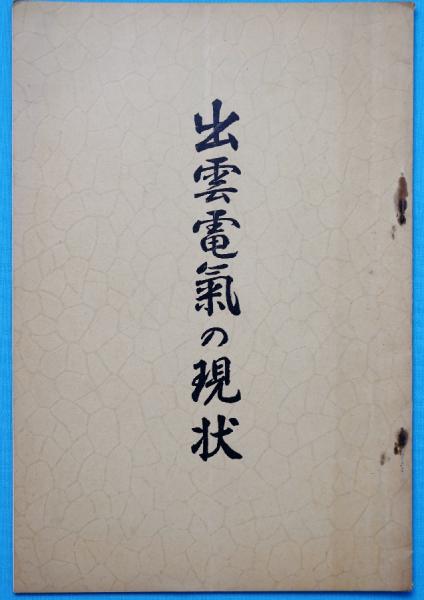 出雲電氣の現状